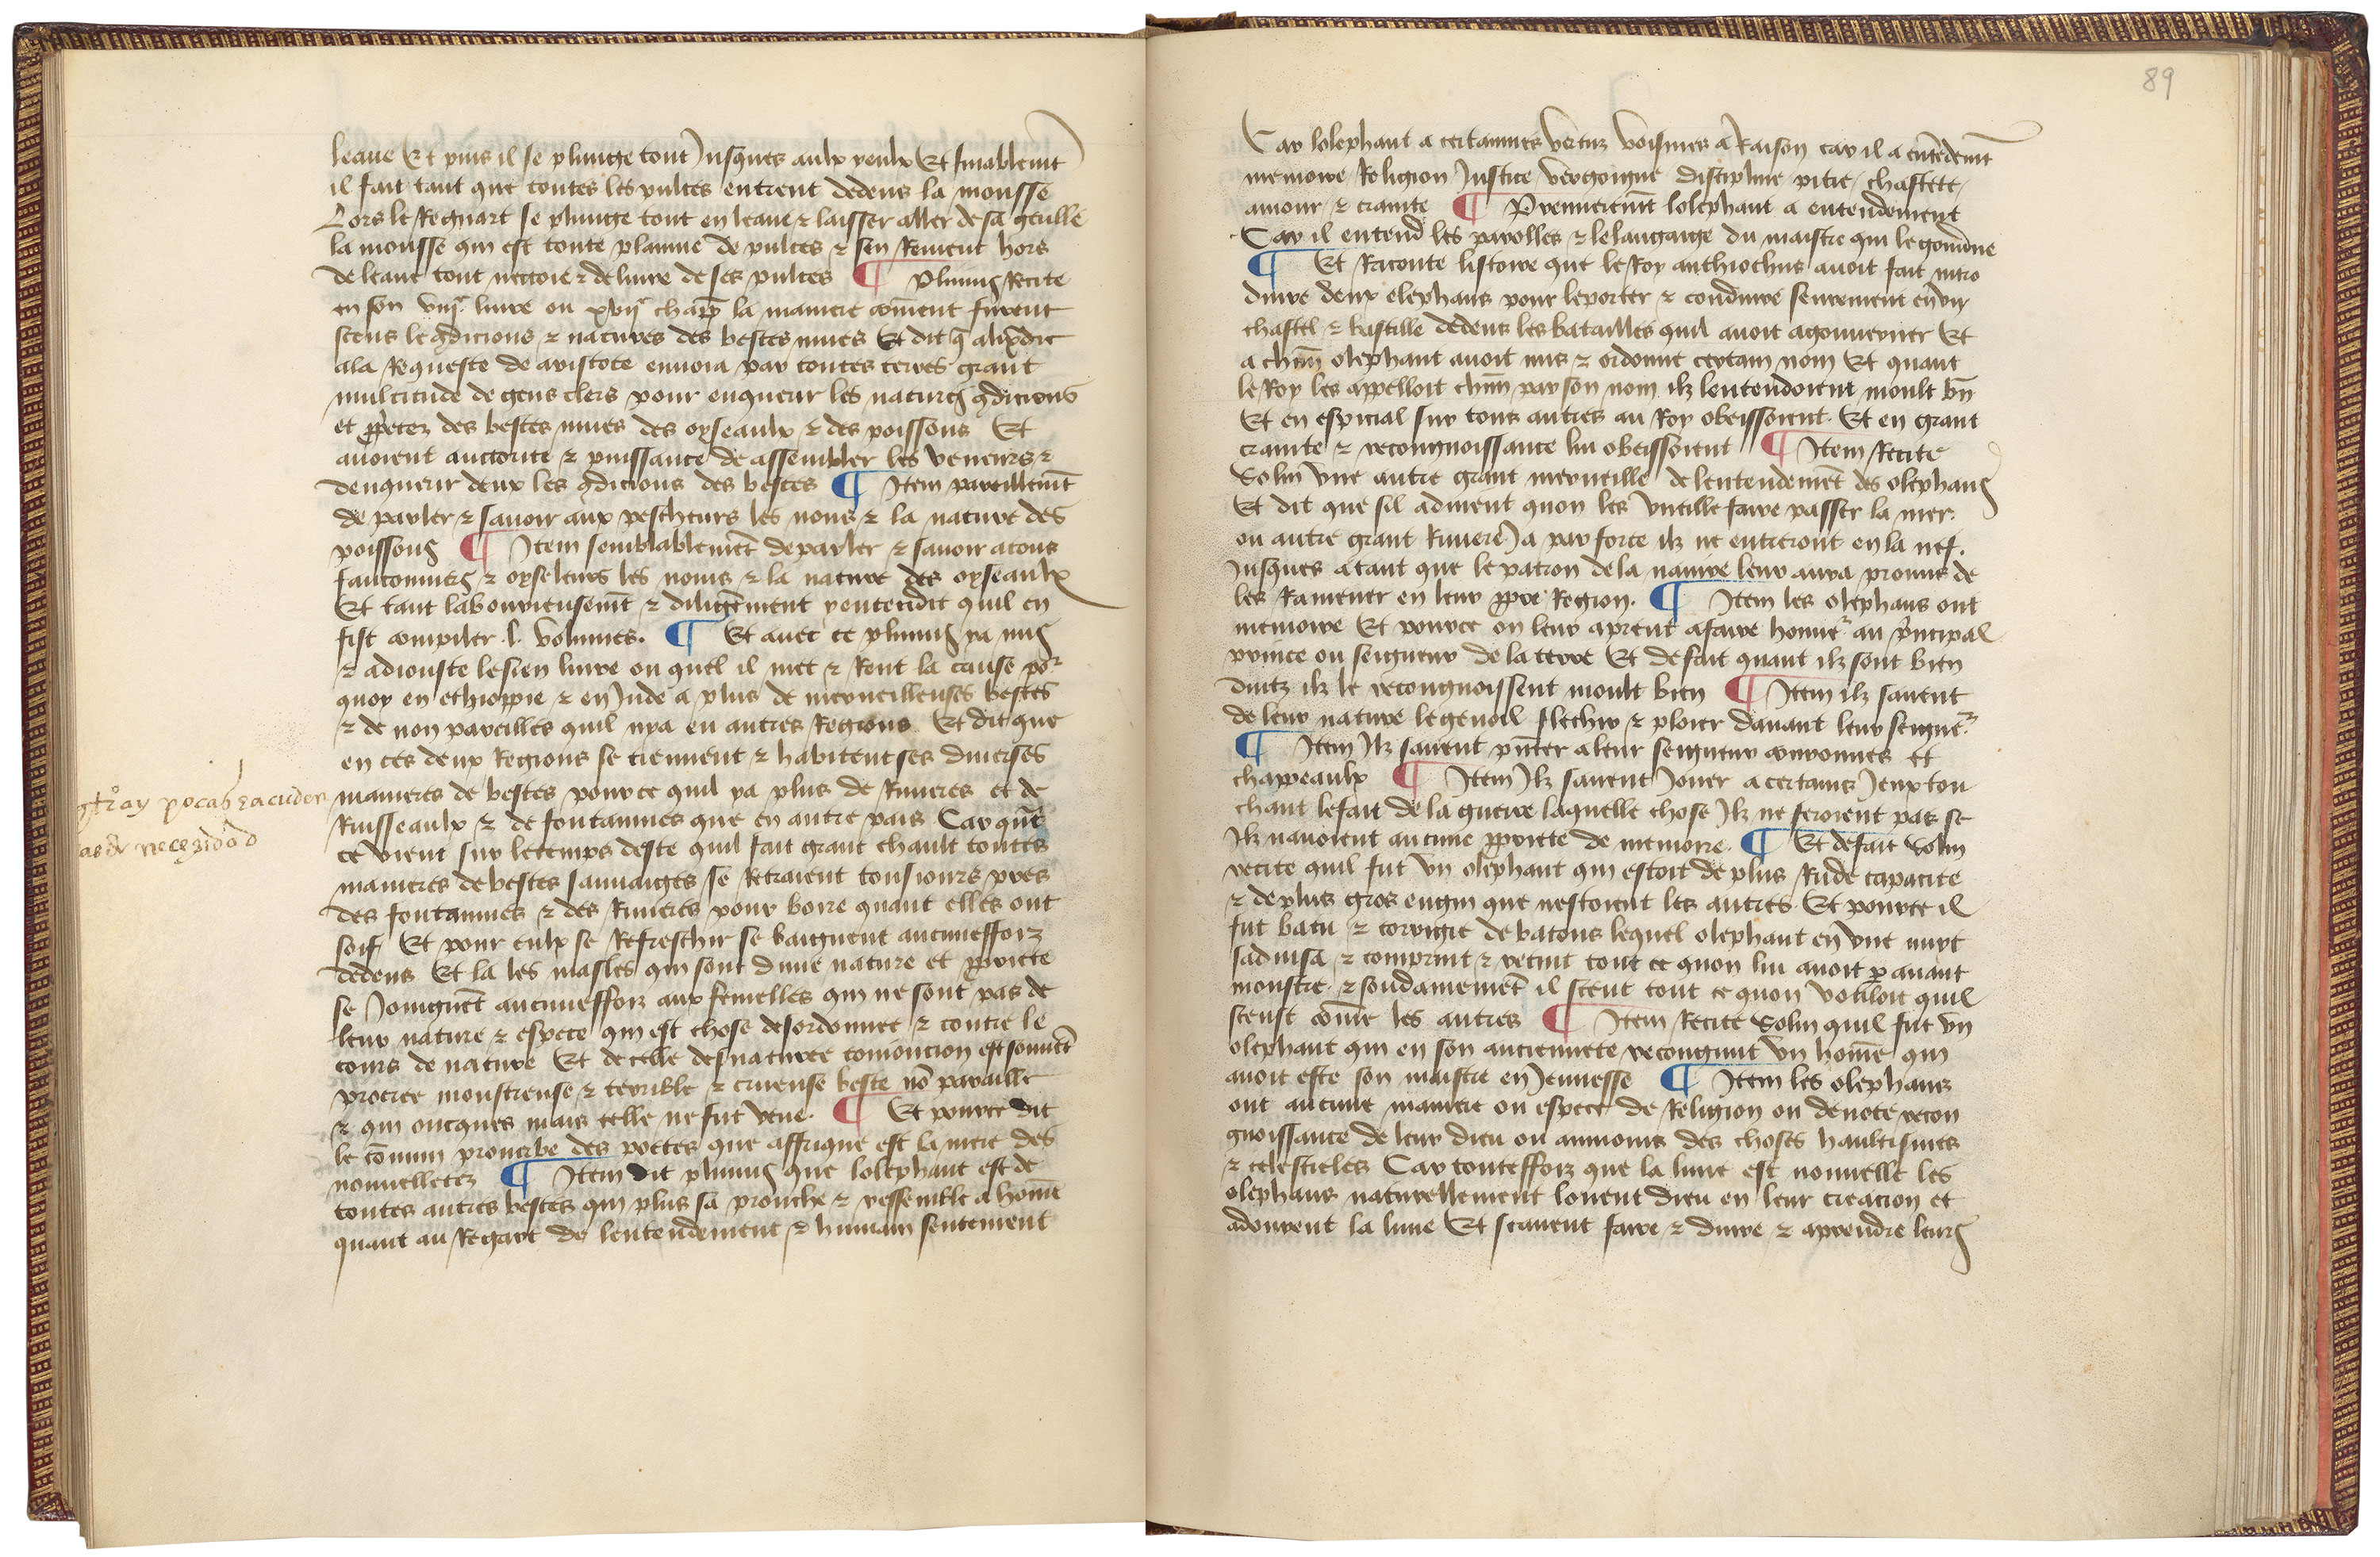 leaue Et puis il se plunge tout Jusques aulx yeulx Et finablemt
il fait tant que toutes les pulces entrent dedens la mousse
Lors le Regnart se plunge tout en leaue ⁊ laisser aller de sa geulle
la mousse qui est toute plainne de pulces ⁊ sen Reuient hors
de leaue tout nettoie ⁊ deliure de ses pulces ¶ Plinius Recite
en son viijᵉ liure ou xvijᵉ chapp̄ la maniere com̄ent furent
sceus le ꝯdicions ⁊ natures des bestes mues Et dit q̄ alixādre
ala Requeste de aristote enuoia par toutes terres grant
multitude de gens clers pour enquerir les natures ꝯdicions
et pp̄etez des bestes mues des oyseaulx ⁊ des poissons Et
auoient auctorite ⁊ puissance de assembler les veneurs ⁊
denquerir deux les ꝯdicions des bestes ¶ Item pareillemt̄
de parler ⁊ sauoir aux pescheurs les noms ⁊ la nature des
poissons ¶ Item semblablemēt de parler ⁊ sauoir atous
fauconniers ⁊ oyseleurs les noms ⁊ la nature des oyseaulx
Et tant labourieusemt̄ ⁊ diligēment y entendit quil en
fist compiler .l. volumes. ¶ Et auec ce plinius ya mis
⁊ adiouste le sien liure ou quel il met ⁊ Rent la cause poʳ
quoy en ethioppie ⁊ en Jnde a plus de merueilleuses bestes
⁊ de non pareilles quil nya en autres Regions Et dit que
en ces deux Regions se tiennent ⁊ habitent ses diuerses
manieres de bestes pource quil ya plus de Riuieres et de
Ruisseaulx ⁊ de fontainnes que en autre pais Car quāt
ce vient sur le temps deste quil fait grant chault toutes
manieres de bestes sauuaiges se Retraient tousiours pres
des fontainnes ⁊ des Riuieres pour boire quant elles ont
soif Et pour eulx se Refreschir se baignent aucuneffoiz
dedens Et la les masles qui sont dune nature et pp̄riete
se Joingnēt aucuneffoiz aux femelles qui ne sont pas de
leur nature ⁊ espece qui est chose desordonnee ⁊ contre le
cours de nature Et de celle desnaturee coniunction est souuēt
procree monstreuse ⁊ terrible ⁊ crueuse beste nō paraille
⁊ qui oncques mais telle ne fut veue. ¶ Et pource dit
le cōmun prouerbe des poetes que affrique est la mere des
nouuelletez ¶ Item dit plinius que lolephant est de
toutes autres bestes qui plus sa prouche ⁊ ressemble a hōme
quant au Regart de lentendement ⁊ humain sentement
necezidad
89
Car lolephant a certainnes vertuz voisines a Raison car il a entēdemt̄
memoire Religion Justice vergoigne discipline pitie / chastete /
amour ⁊ crainte ¶ Premieremt̄ lolephant a entendement
Car il entend les parolles ⁊ le langaige du maistre qui le gouūne
¶ Et Raconte listoire que le Roy anthiochus auoit fait intro
duire deux elephans pour le porter ⁊ conduire seurement en vn
chastel ⁊ bastille dedens les batailles quil auoit agouuerner Et
a chūn olephant auoit mis ⁊ ordonne certain nom Et quant
le Roy les appelloit chūn par son nom ilz lentendoient moult bn̄
Et en especial sur tous autres au Roy obeissoient Et en grant
crainte ⁊ recongnoissance lui obeissoient ¶ Item Recite
Solin vne autre grant merueille de lentendemēt des olephans
Et dit que sil aduient quon les vueille faire passer la mer.
ou autre grant Riuiere Ja par force ilz ne entreront en la nef.
Jusques atant que le patron de la nauire leur aura promis de
les Ramener en leur pp̄re Region. ¶ Item les olephans ont
memoire Et pource on leur aprent afaire honneʳ au p̄ncipal
prince ou seigneur de la terre Et de fait quant ilz sont bien
duitz ilz le recongnoissent moult bien ¶ Item ilz sauent
de leur nature le genoil flechir ⁊ ploier dauant leur seigneʳ
¶ Item Jlz sauent p̄nter a leur seigneur couronnes et
chappeaulx ¶ Item Jlz sauent Jouer a certains Jeux tou
chant le fait de la guerre laquelle chose Jlz ne feroient pas se
Jlz nauoient aucune pp̄riete de memoire. ¶ Et de fait Solin
recite quil fut vn olephant qui estoit de plus Rude capacite
⁊ de plus gros engin que nestoient les autres Et pource il
fut batu ⁊ corrigie de batons lequel olephant en vne nuyt
sad uisa ⁊ comprint ⁊ retint tout ce quon lui auoit ꝑ auant
monstre ⁊ soudainemēt il sceut tout ce quon vouloit quil
sceust cōme les autres ¶ Item Recite Solin quil fut vn
olephant qui en son anciennete recongnut vn hōme qui
auoit este son maistre en Jeunesse ¶ Item les olephans
ont aucune maniere ou espece de Religion ou deuote recon
gnoissance de leur dieu ou aumoins des choses haultismes
⁊ celestieles Car touteffoiz que la lune est nouuelle les
olephans naturellement louent dieu en leur creacion et
adourent la lune Et sceuent faire ⁊ duire ⁊ aprendre leurs